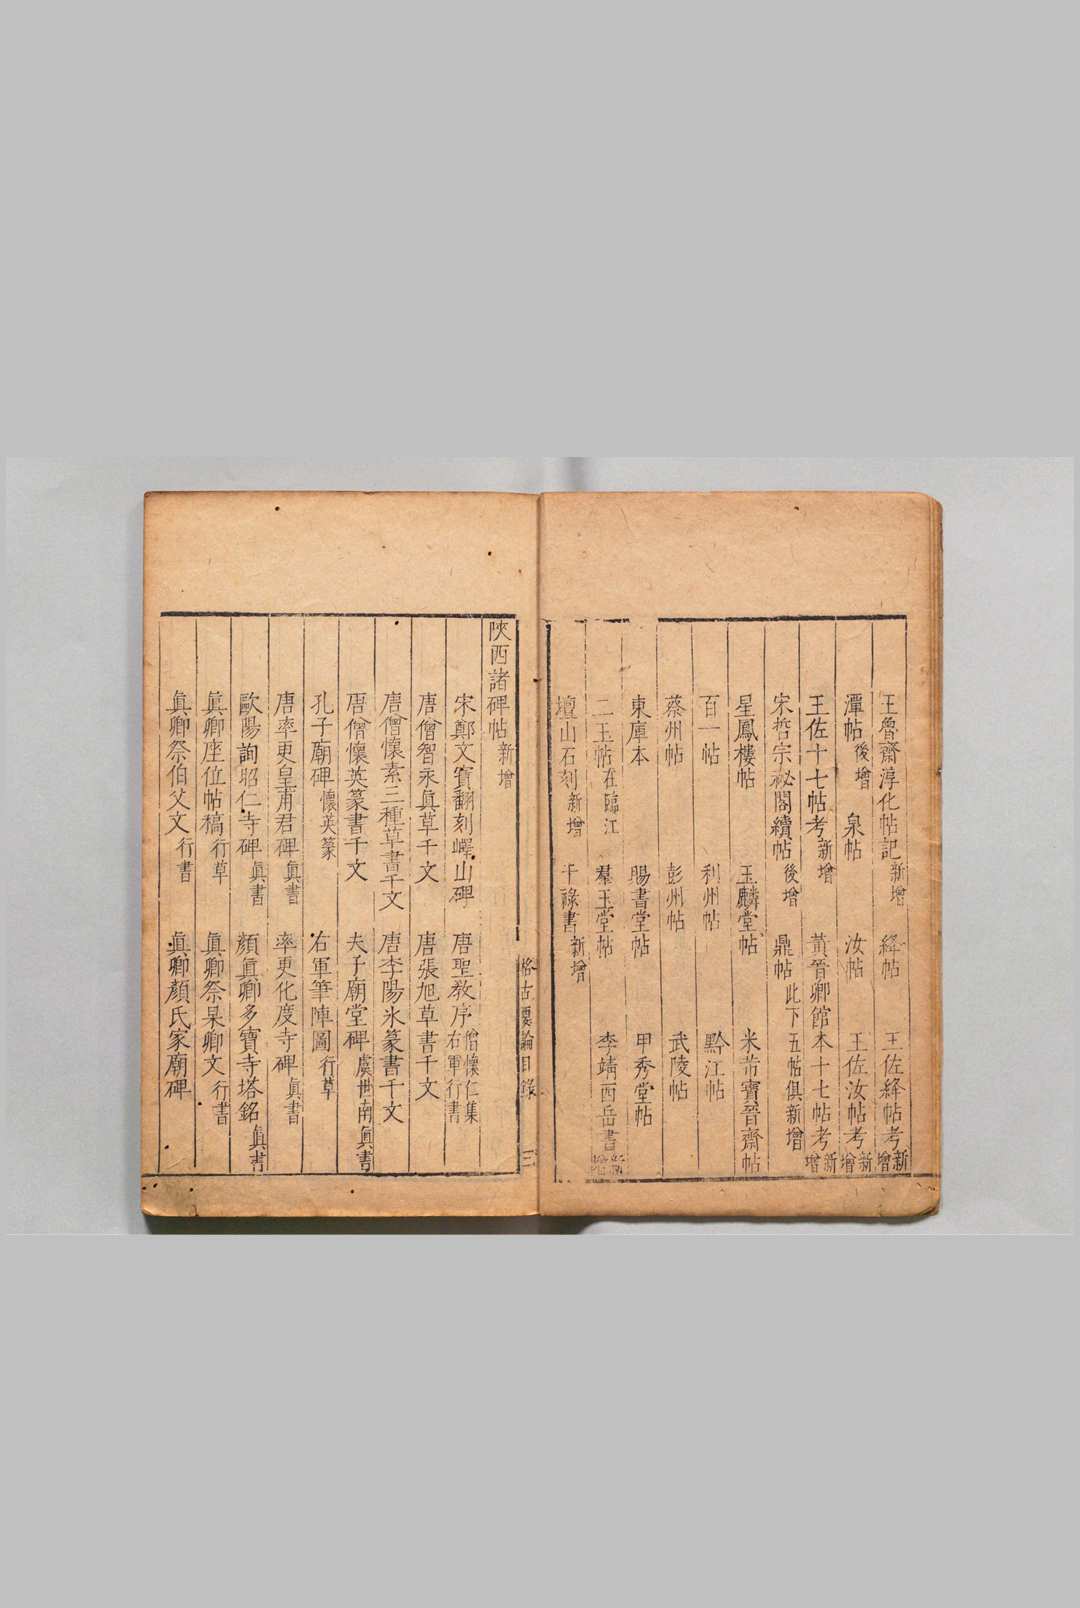 王魯齋淳化帖記新增 絳帖 王佐絳帖考新增
潭帖後增 泉帖 汝帖 王佐汝帖考新增
王佐十七帖考新增 黃晉卿館本十七帖考新增
宋哲宗祕閣續帖後增 鼎帖此下五帖俱新增
星鳳樓帖 玉麟堂帖 米芾寶晉齋帖
百一帖 利州帖 黔江帖
蔡州帖 彭州帖 武陵帖
東庫本 賜書堂帖 甲秀堂帖
二王帖在臨江 羣玉堂帖 李靖西岳書新增
壇山石刻新增 干祿書新增
格古要論目錄 三
陝西諸碑帖新增
宋鄭文寶翻刻嶧山碑 唐聖教序僧懷仁集右軍行書
唐僧智永眞草千文 唐張旭草書千文
唐僧懷素三種草書千文 唐李陽氷篆書千文
唐僧懷英篆書千文 夫子廟堂碑虞世南眞書
孔子廟碑懷英篆 右軍筆陣圖行草
唐率更皇甫君碑眞書 率更化度寺碑眞書
歐陽詢昭仁寺碑眞書 顏眞卿多寶寺塔銘眞書
眞卿座位帖稿行草 眞卿祭杲卿文行書
眞卿祭伯父文行書 眞卿顏氏家廟碑